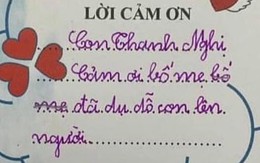 LỜI CẢM ƠN
Con Thanh Nghị
Cảm ơi bố mẹ bố
mẹ đã dụ dỗ con lên
người